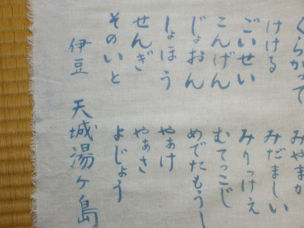 くらかて
けける
ごいせい
こんげん
じょおん
しょほう
せんぎ
そのいと
みやまか
みだましい
みりっけえ
むてっこじ
めでたもうし
やあけ
やぁさ
よじょう
伊豆 天城湯ヶ島